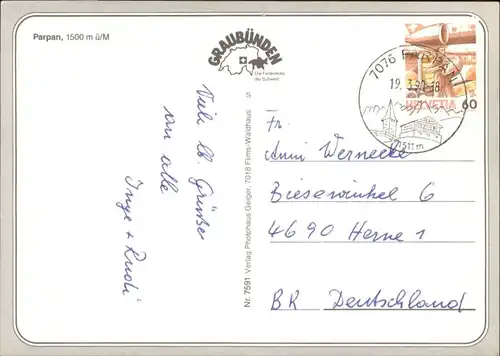 Parpan, 1500 m ü/M
GRAUBÜNDEN
Die Ferienecke
der Schweiz
S
Viele lb. Grüsse
an alle
Inge + Rudi
Nr. 7591 Verlag Photohaus Geiger, 7018 Flims-Waldhaus
7076 PARPAN
19.3.90-18
1511 m
HELVETIA 60
Fr.
Anni Wernecke
Biesewinkel 6
4690 Herne 1
BR Deutschland